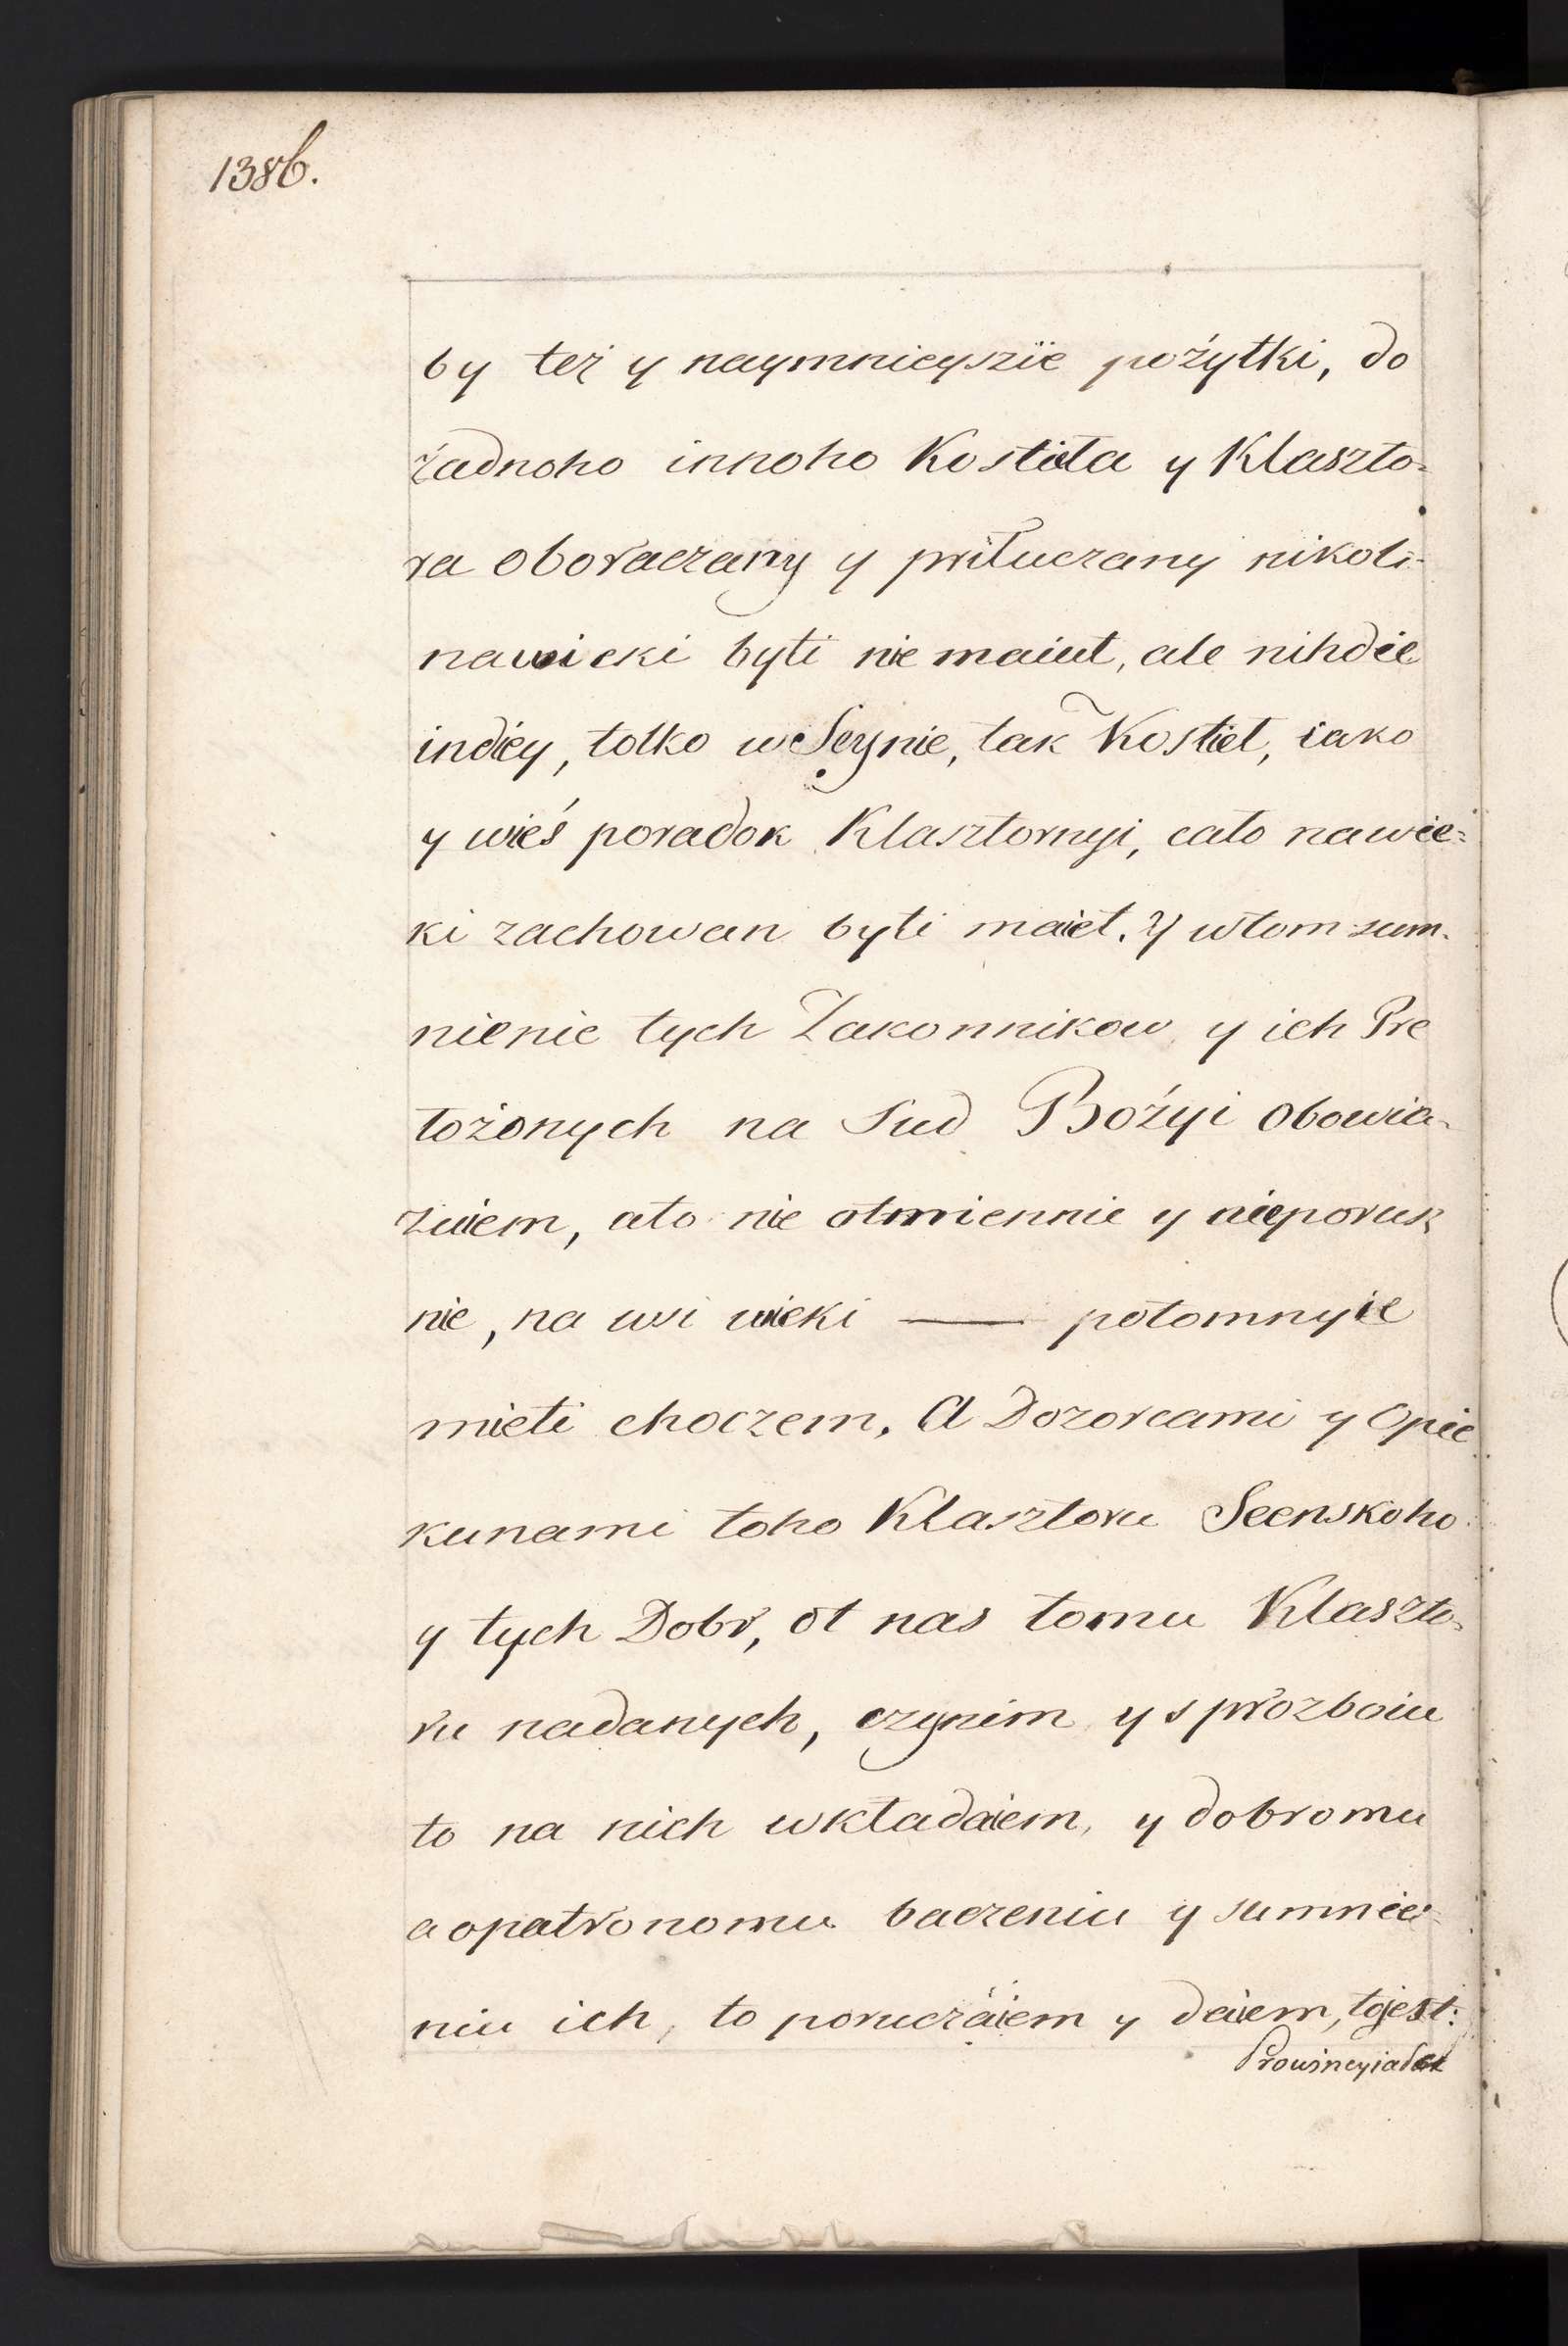 1386.
by też y naymnieyszïe pożytki, do
żadnoho innoho Kostieła y Klaszto-
ra oboraczany y priłuczany nikoli-
nawieki byti nie maiut, ale nihdie
indiey, tolko w Seynie, tak Kostieł, iako
y wieś poradok Klasztornyi, cało nawie=
ki zachowan byti maiet. Y wtom sum-
nienie tych Zakonnikow y ich Pre
łożonych na Sud Bożyi obowia-
zuiem, ato nie otmiennie y nieporusz
nie, na wsi wieki — potomnyie
mieti choczem. A Dozorcami y Opie
kunami toho Klasztoru Seenskoho
y tych Dobr, ot nas tomu Klaszto-
ru nadanych, czynim y s prozboiu
to na nich wkładaiem, y dobromu
a opatronomu baczeniu y sumnie=
niu ich, to poruczaiem y daiem, tojest: